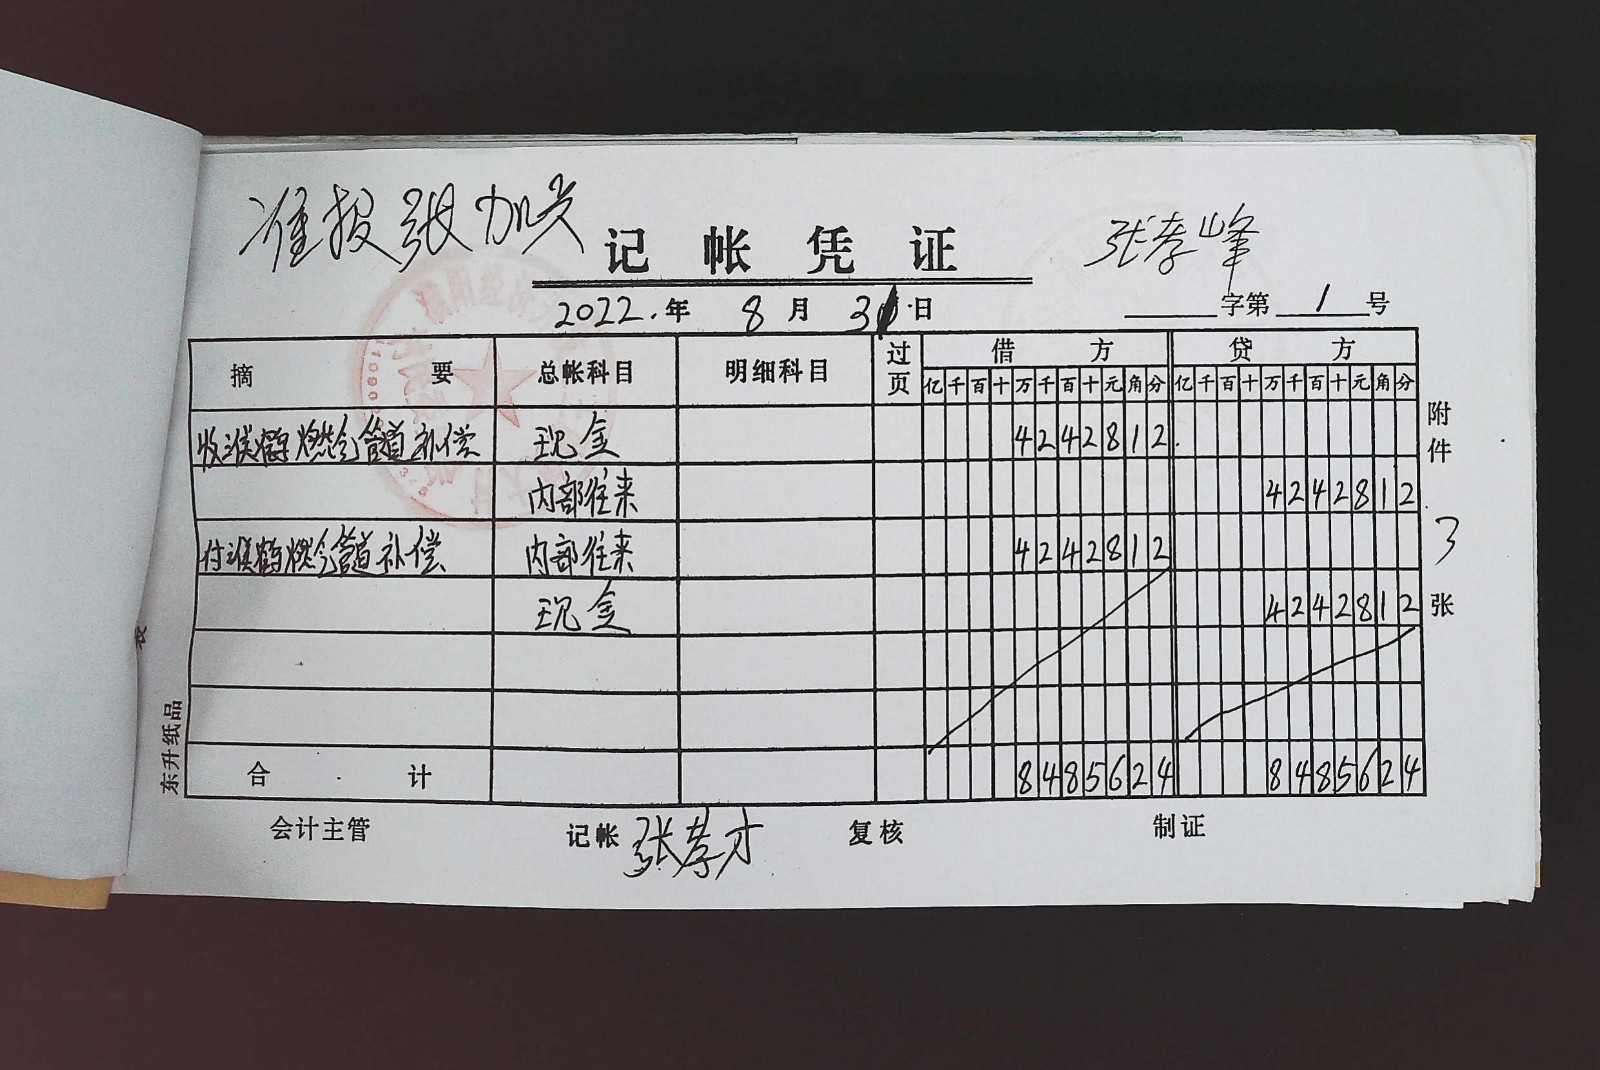 准报 张加兴
张孝峰
记帐凭证
2022.年 8月 31日
字第 1 号
摘要 总帐科目 明细科目 过页 借方 贷方
亿千百十万千百十元角分 亿千百十万千百十元角分
收淮鹤燃气管道补偿 现金 4242812
内部往来 4242812
付淮鹤燃气管道补偿 内部往来 4242812
现金 4242812
合计 8485624 8485624
附件 3 张
东升纸品
会计主管 记帐 张孝才 复核 制证